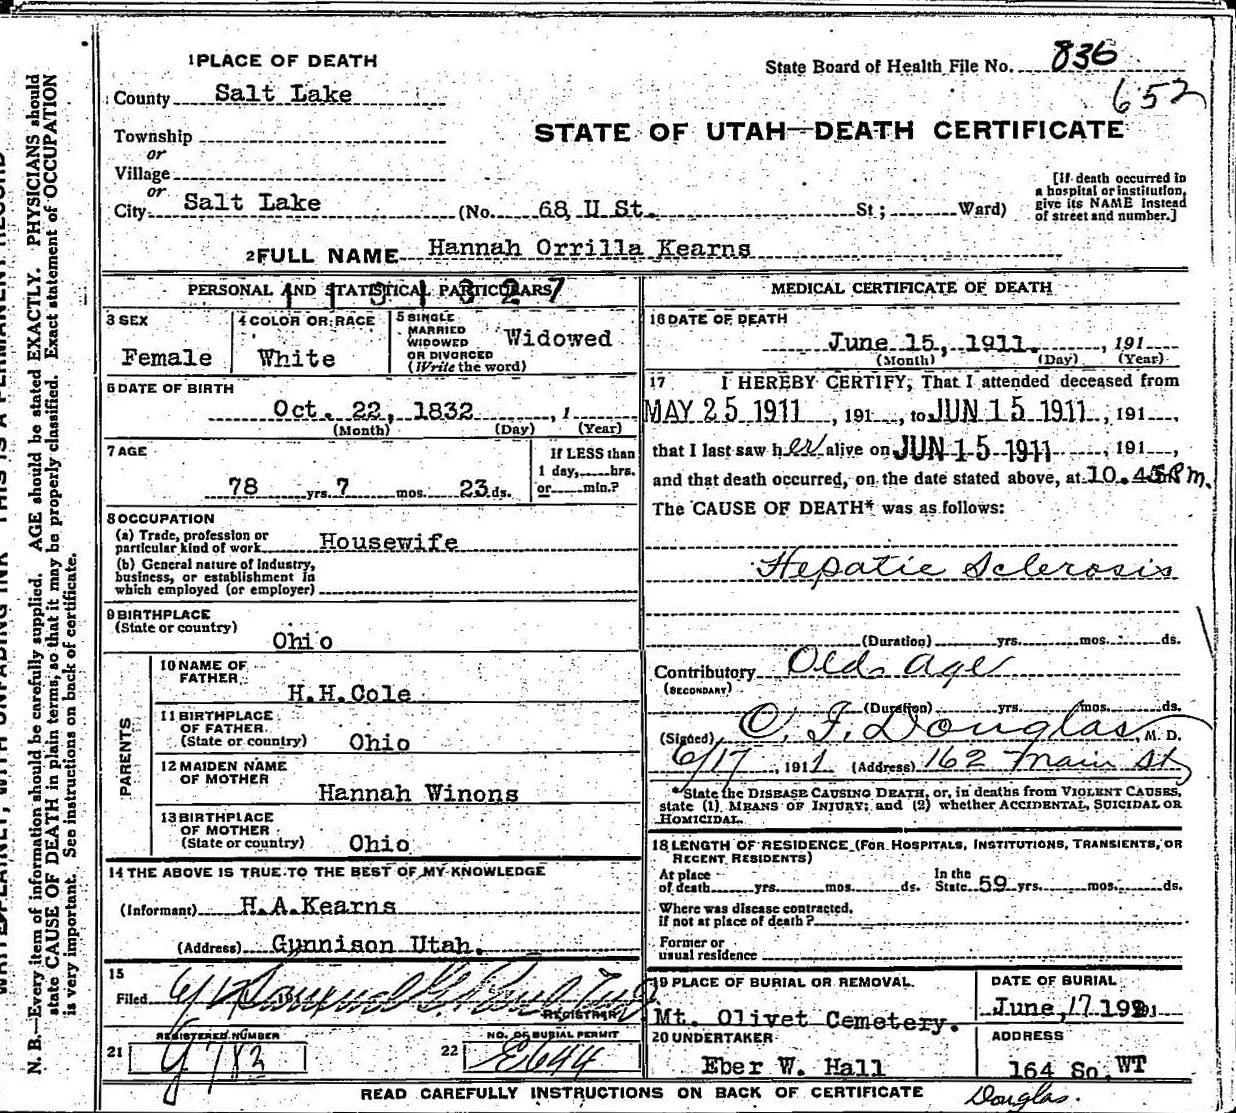 836
State Board of Health File No.
652
1 PLACE OF DEATH
County Salt Lake
STATE OF UTAH—DEATH CERTIFICATE
Township
or
Village
or
City Salt Lake (No. 68 U St. St; Ward)
[If death occurred in a hospital or institution, give its NAME instead of street and number.]
2 FULL NAME Hannah Orrilla Kearns
PERSONAL AND STATISTICAL PARTICULARS
3 SEX
Female
4 COLOR OR RACE
White
5 SINGLE
MARRIED
WIDOWED
OR DIVORCED
(Write the word)
Widowed
6 DATE OF BIRTH
Oct. 22, 1832, 1
(Month) (Day) (Year)
7 AGE
78 yrs. 7 mos. 23 ds.
If LESS than
1 day, hrs.
or min.?
8 OCCUPATION
(a) Trade, profession or
particular kind of work Housewife
(b) General nature of Industry,
business, or establishment in
which employed (or employer)
9 BIRTHPLACE
(State or country)
Ohio
PARENTS
10 NAME OF
FATHER
H.H.Cole
11 BIRTHPLACE
OF FATHER
(State or country) Ohio
12 MAIDEN NAME
OF MOTHER
Hannah Winons
13 BIRTHPLACE
OF MOTHER
(State or country) Ohio
14 THE ABOVE IS TRUE TO THE BEST OF MY KNOWLEDGE
(Informant) H.A.Kearns
(Address) Gunnison Utah.
15
Filed
REGISTRAR
REGISTERED NUMBER
21
NO. OF BURIAL PERMIT
22 E644
MEDICAL CERTIFICATE OF DEATH
16 DATE OF DEATH
June 15, 1911. , 191
(Month) (Day) (Year)
17 I HEREBY CERTIFY, That I attended deceased from
MAY 25 1911 , 191 , to JUN 15 1911 , 191 ,
that I last saw her alive on JUN 15 1911 , 191 ,
and that death occurred, on the date stated above, at 10.45 P m.
The CAUSE OF DEATH* was as follows:
Hepatic Sclerosis
(Duration) yrs. mos. ds.
Contributory Old Age
(SECONDARY)
(Duration) yrs. mos. ds.
(Signed) C. F. Douglas, M. D.
6/17, 1911 (Address) 162 Main St
*State the DISEASE CAUSING DEATH, or, in deaths from VIOLENT CAUSES,
state (1) MEANS OF INJURY; and (2) whether ACCIDENTAL, SUICIDAL OR
HOMICIDAL.
18 LENGTH OF RESIDENCE (FOR HOSPITALS, INSTITUTIONS, TRANSIENTS, OR
RECENT RESIDENTS)
At place
of death yrs. mos. ds.
In the
State 59 yrs. mos. ds.
Where was disease contracted,
if not at place of death?
Former or
usual residence
19 PLACE OF BURIAL OR REMOVAL.
Mt. Olivet Cemetery.
DATE OF BURIAL
June, 17 191
20 UNDERTAKER
Eber W. Hall
ADDRESS
164 So. WT
READ CAREFULLY INSTRUCTIONS ON BACK OF CERTIFICATE
Douglas.
N. B.—Every item of information should be carefully supplied. AGE should be stated EXACTLY. PHYSICIANS should
state CAUSE OF DEATH in plain terms, so that it may be properly classified. Exact statement of OCCUPATION
is very important. See instructions on back of certificate.